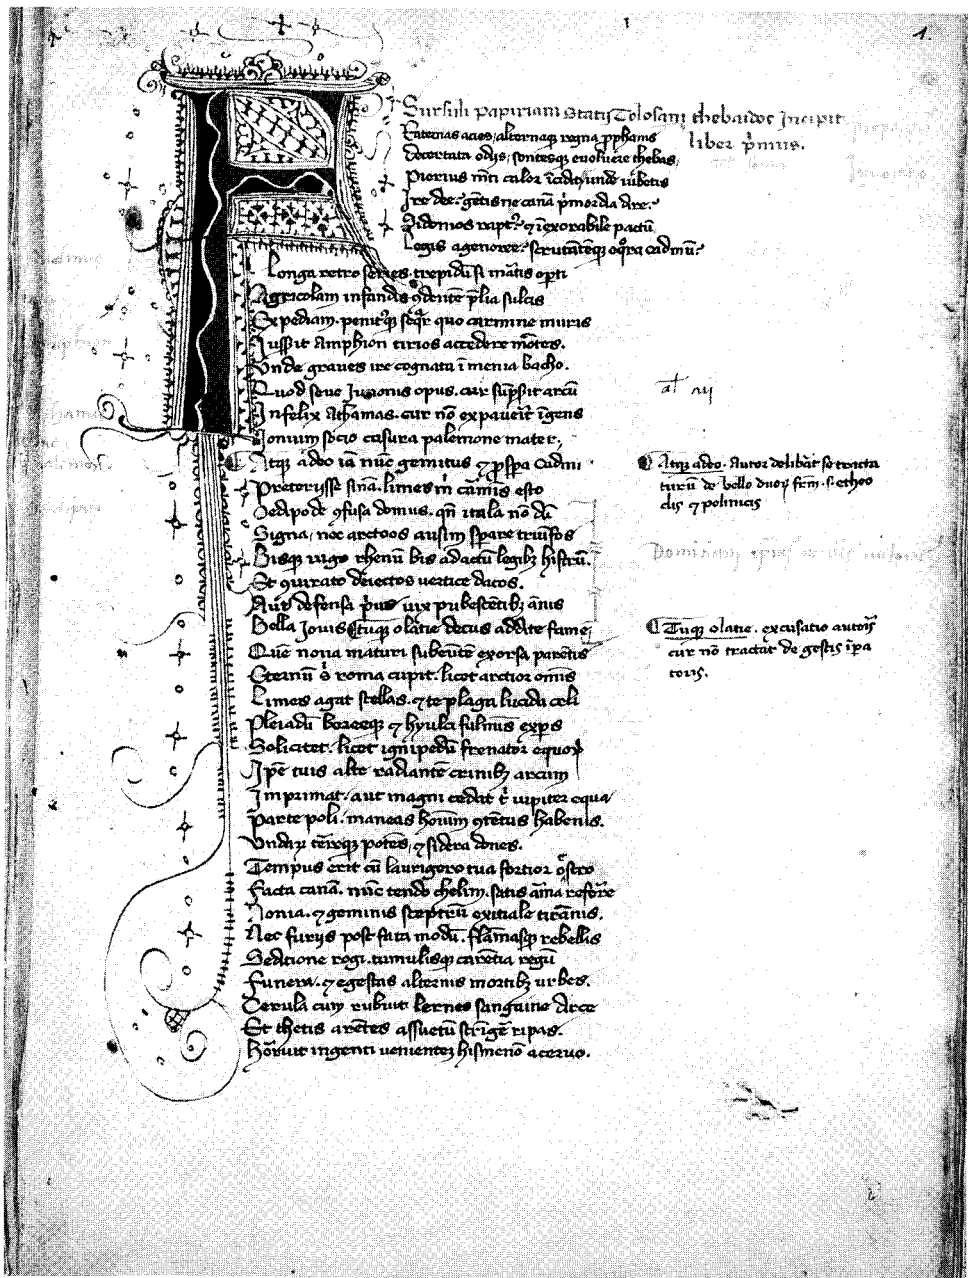 1
Sursuli papiriani Statij Tolosani thebaidos Incipit
liber p̄mus.
Fraternas acies, alternaq̨ regna p̱phanis
Decertata odijs, sontesq̨ euoluere thebas,
Pierius m̄ti calor īcidit, unde iubetis
Ire dee. gētis ne canā p̄mordia dire.
Sidonios rapt9. ⁊ īexorabile pactū
Legis agenoree. scrutātēq̨ eq̄ra cadmū.
Longa retro series. trepidū si m̄tis opti
Agricolam infandis ꝯdentē p̄lia sulcis
Expediam. penit9q̨ seq̄r quo carmine muris
Iussit Amphion tirios accedere mōtes.
Vnde graues ire cognata ī menia bacho.
Quod seue Iunonis opus. cui sūpsit arcū
Infelix Athamas. cur nō expauerit īgens
Ionium socio casura palemone mater.
Atq̨ adeo iā nūc gemitus ⁊ p̱spa Cadmi
Preterijsse sinā. limes m̄ cārmis esto
Oedipode ꝯfusa domus. qn̄ itala nō dū
Signa, nec arctoos ausim spare triūfos
Bisq̨ iugo rhenū bis adactū legibꝫ histrū.
Et ꝯiurato deiectos uertice dacos.
Aut defensa p̄us uix pubescētibꝫ ānis
Bella Iouis Tuq̨ o latie decus addite fame
Quē noua maturi subeūtē exorsa parētis
Eternū s̄ roma cupit. licet arctior omīs
Limes agat stellas. ⁊ te plaga lucida celi
Pleiadū boreeq̨ ⁊ hyulci fulmīs exp̱s
Solicitet. licet ignipedū frenator equoꝝ
Ip̄e tuis alte radiantē crinibꝫ arcum
Imprimat. aut magni cedat t̄ iupiter equa
Parte poli. maneas hoīum ꝯtētus habenis.
Vndaꝝ tērreq̨ potens, ⁊ sidera dones.
Tempus erit cū laurigero tua fortior ostro
Facta canā. nūc tendo chelim. satis arma referre
Aonia. ⁊ geminis sceptrū exitiale tirānis.
Nec furijs post fata modū. flāmasq̨ rebellis
Seditione rogi. tumulisq̨ carētia regū
Funera. ⁊ egestas alternis mortibꝫ urbes.
Cerula cum rubuit lernea sanguine dirce
Et thetis arētes assuetū strīgē ripas.
Horruit ingenti uenientez hismenō aceruo.
Atq̨ adeo. Autor delibāt se tracta
turū de bello duoꝝ frm̄. s. etheo
clis ⁊ polinicis
Tuq̨ o latie. excusatio autoris
cur nō tractat de gestis īpa
toris.